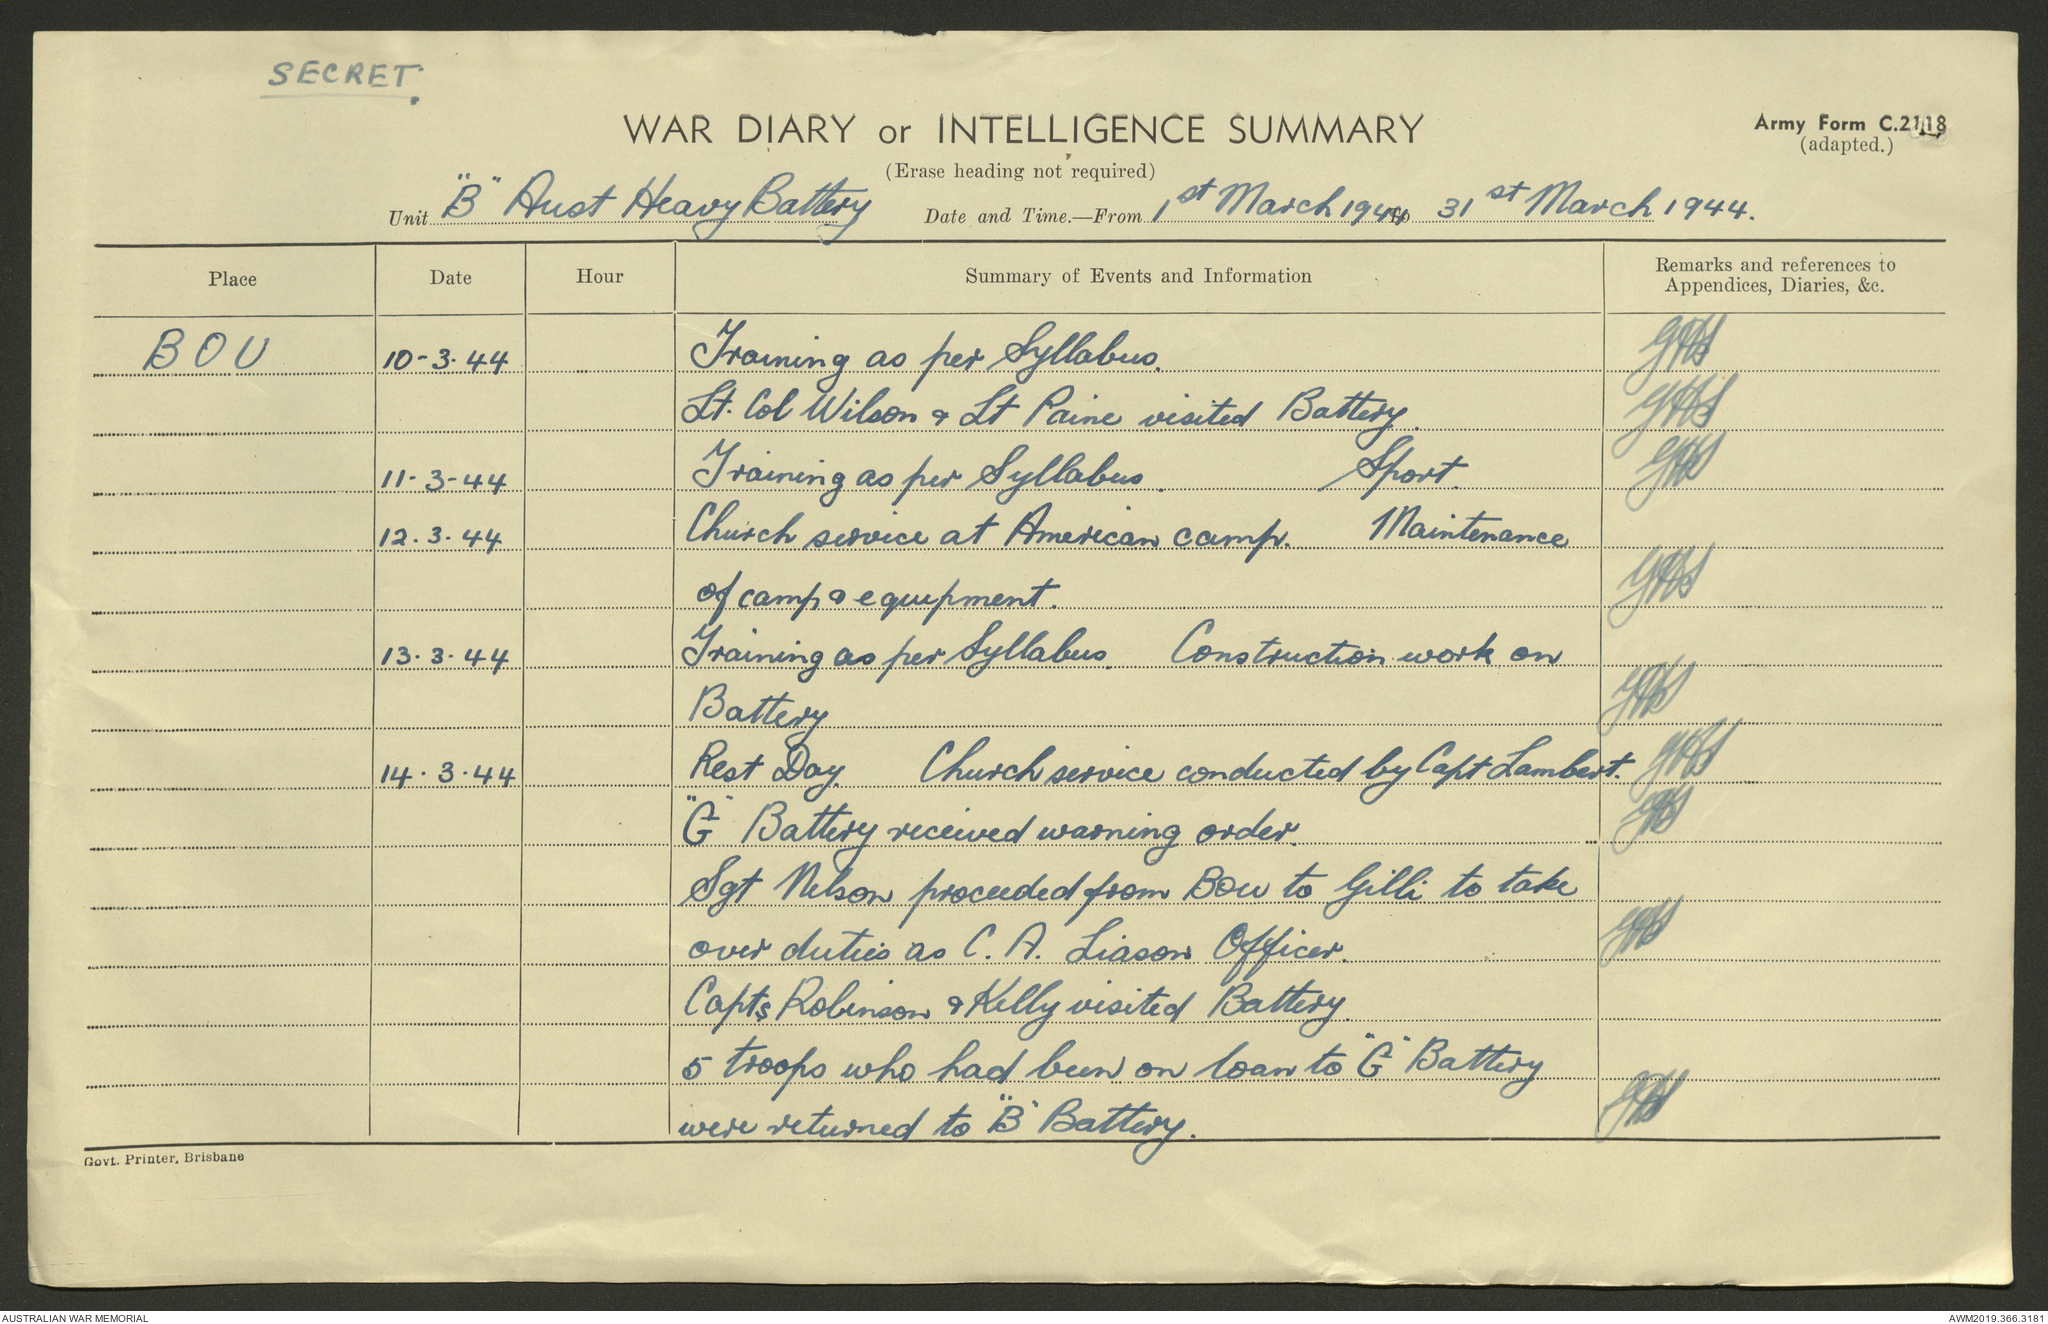 SECRET.
WAR DIARY or INTELLIGENCE SUMMARY
Army Form C.2118
(adapted.)
(Erase heading not required)
Unit "B" Aust Heavy Battery Date and Time.—From 1st March 1944 to 31st March 1944.
Place Date Hour Summary of Events and Information Remarks and references to
Appendices, Diaries, &c.
BOU 10-3-44 Training as per Syllabus.
Lt. Col Wilson & Lt Paine visited Battery.
11-3-44 Training as per Syllabus. Sport.
12.3.44 Church service at American camp. Maintenance
of camp & equipment.
13.3.44 Training as per Syllabus. Construction work on
Battery
14.3.44 Rest Day. Church service conducted by Capt Lambert.
"G" Battery received warning order.
Sgt Nelson proceeded from BOU to Gilli to take
over duties as C. A. Liason Officer.
Capts Robinson & Kelly visited Battery.
5 troops who had been on loan to "G" Battery
were returned to "B" Battery.
Govt. Printer, Brisbane
AUSTRALIAN WAR MEMORIAL
AWM2019.366.3181